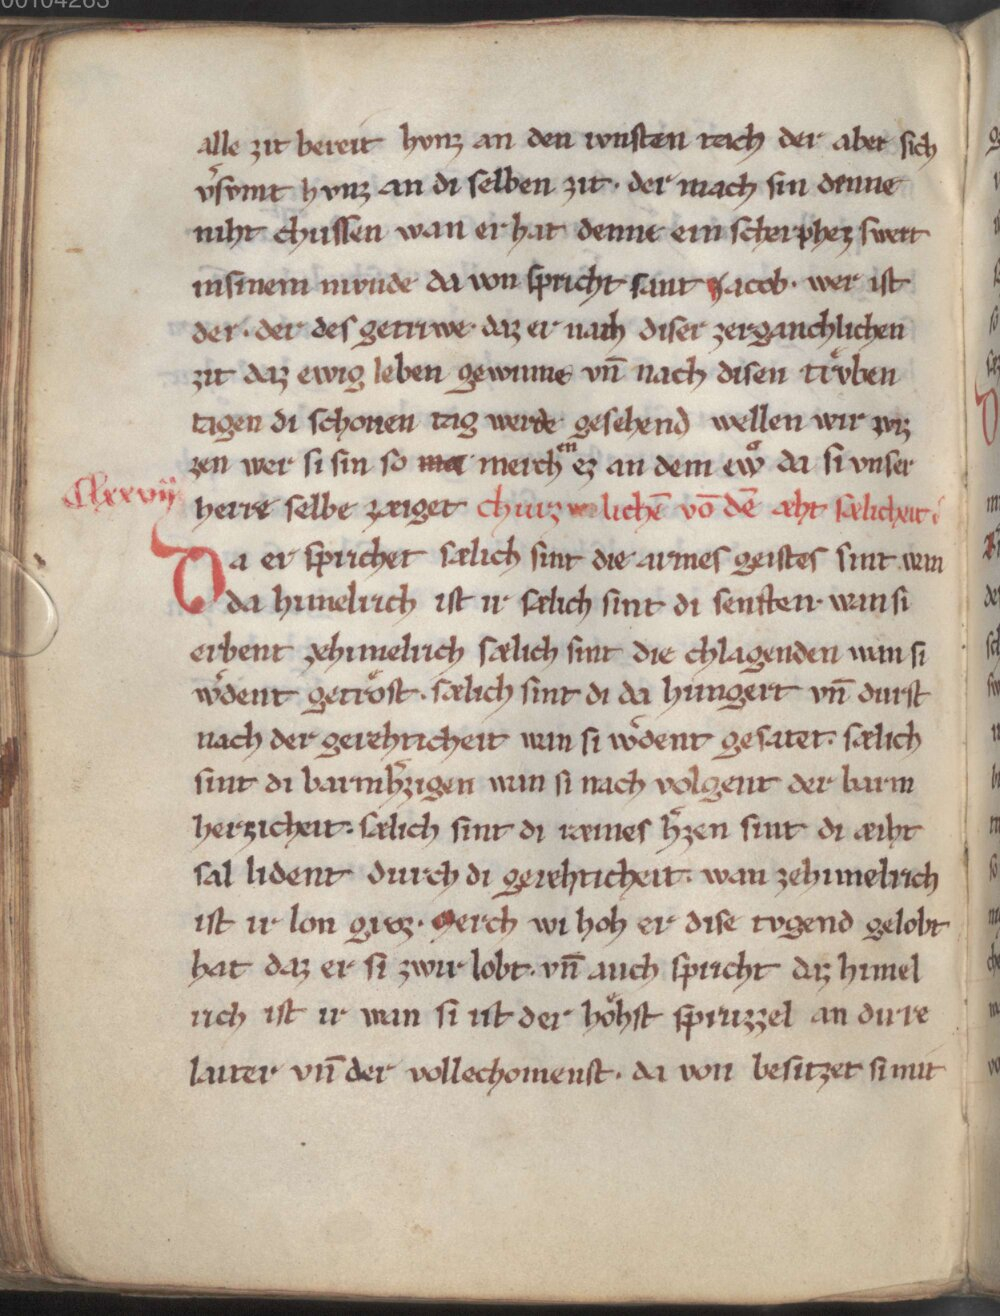 00104263
alle zit bereit hvnz an den ivnsten tach der aber sich
v͛svmt hvnz an di selben zit · der mach sin denne
niht chussen wan er hat denne ein scherphez swert
in sinem mvnde da von spricht sant Jacob · wer ist
der · der des getrwe · daz er nach diser zerganchlichen
zit daz ewig leben gewinne vn̄ nach disen trv̊ben
tagen di schonen tag werde gesehend wellen wir wiz
zen wer si sin so merchen ez an dem ewͦ da si vnser
Clxxvij
herre selbe zæiget chuizlichē vō dē æht sælicheit
Da er sprichet sælich sint die armes geistes sint wan
da himelrich ist ir sælich sint di senften wan si
erbent zehimelrich sælich sint die chlagenden wan si
w͛dent getrost · sælich sint di da hungert vn̄ durst
nach der gerehticheit wan si w͛dent gesatet · sælich
sint di barmh͛zigen wan si nach volgent der barm
herzicheit · sælich sint di ræines h͛zen sint di æiht
sal lident durch di gerehticheit · wan zehimelrich
ist ir lon groz · Merch wi hoh er dise tvgend gelobt
hat daz er si zwir lobt · vn̄ auch spricht daz himel
rich ist ir wan si ist der hohst spruzzel an dirre
laiter vn̄ der vollechomenst · da von besitzet si mit